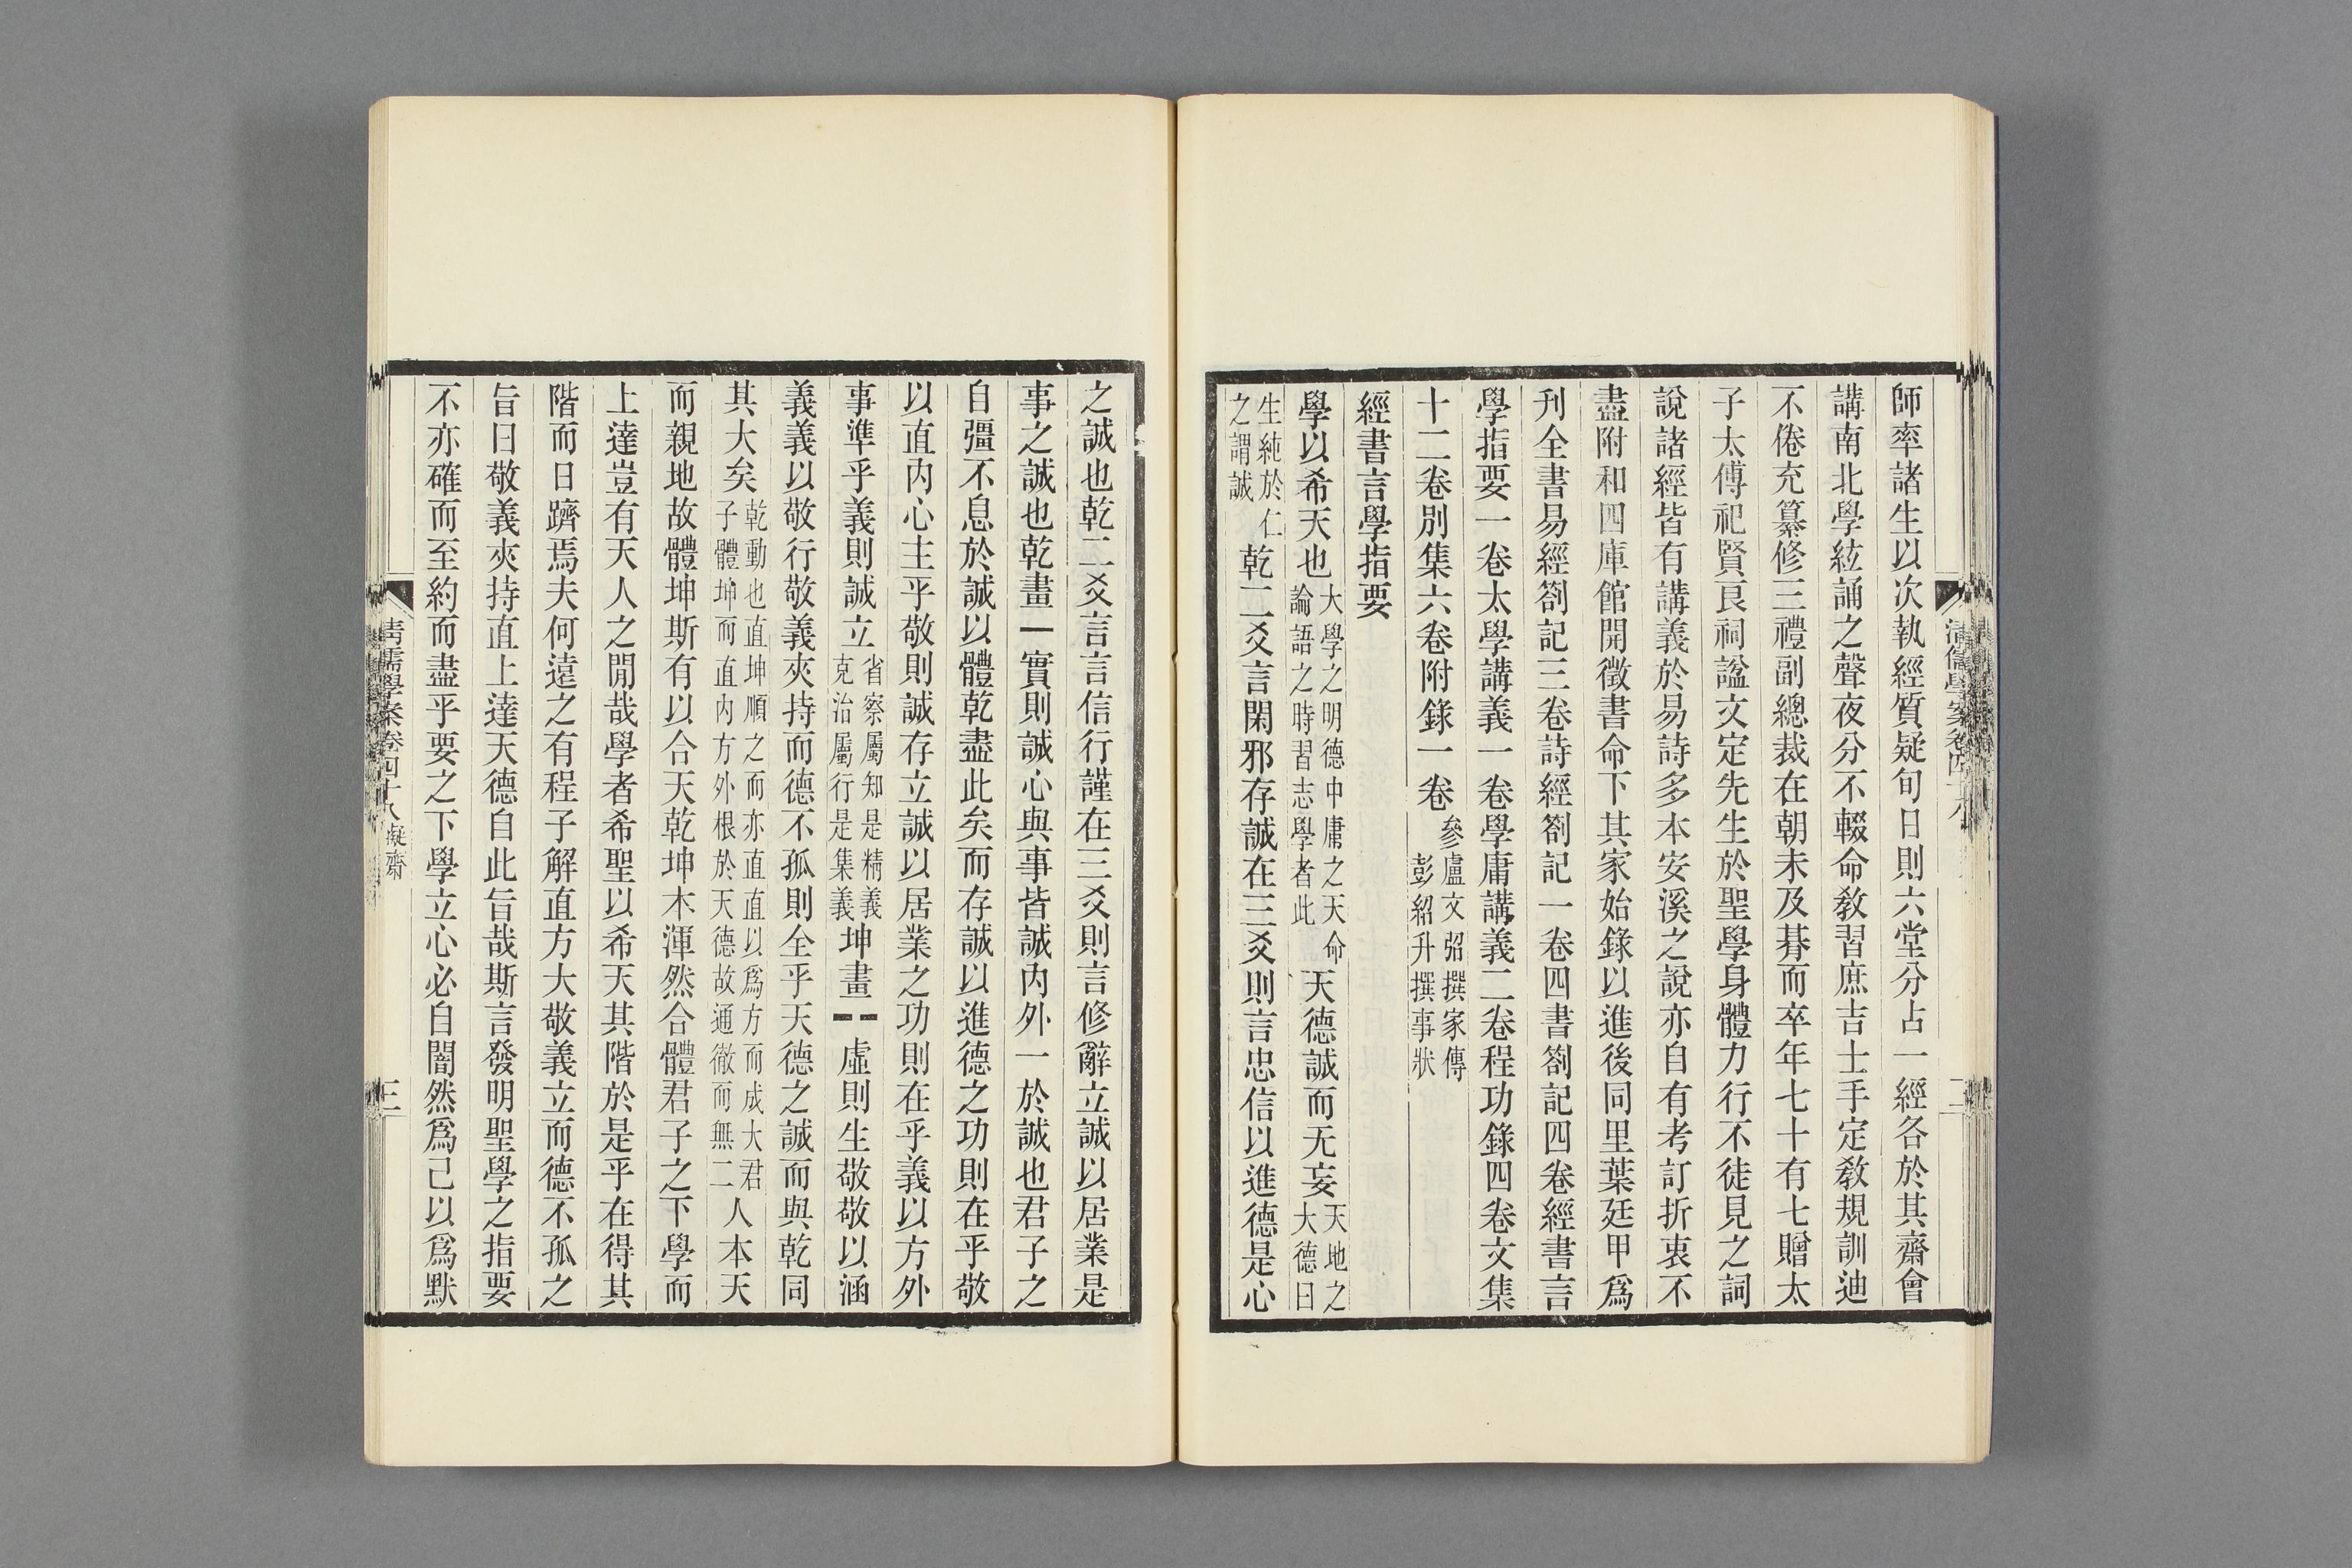 師率諸生以次執經質疑旬日則六堂分占一經各於其齋會
講南北學絃誦之聲夜分不輟命敎習庶吉士手定敎規訓迪
不倦充纂修三禮副總裁在朝未及朞而卒年七十有七贈太
子太傅祀賢良祠諡文定先生於聖學身體力行不徒見之詞
說諸經皆有講義於易詩多本安溪之說亦自有考訂折衷不
盡附和四庫館開徵書命下其家始錄以進後同里葉廷甲爲
刋全書易經劄記三卷詩經劄記一卷四書劄記四卷經書言
學指要一卷太學講義一卷學庸講義二卷程功錄四卷文集
十二卷別集六卷附錄一卷參盧文弨撰家傳彭紹升撰事狀
經書言學指要
學以希天也大學之明德中庸之天命論語之時習志學者此天德誠而无妄天地之大德曰
生純於仁之謂誠乾二爻言閑邪存誠在三爻則言忠信以進德是心
之誠也乾二爻言言信行謹在三爻則言修辭立誠以居業是
事之誠也乾畫一實則誠心與事皆誠內外一於誠也君子之
自彊不息於誠以體乾盡此矣而存誠以進德之功則在乎敬
以直內心主乎敬則誠存立誠以居業之功則在乎義以方外
事準乎義則誠立省察屬知是精義克治屬行是集義坤畫⚋虛則生敬敬以涵
義義以敬行敬義夾持而德不孤則全乎天德之誠而與乾同
其大矣乾動也直坤順之而亦直直以爲方而成大君子體坤而直內方外根於天德故通徹而無二人本天
而親地故體坤斯有以合天乾坤本渾然合體君子之下學而
上達豈有天人之閒哉學者希聖以希天其階於是乎在得其
階而日躋焉夫何遠之有程子解直方大敬義立而德不孤之
旨曰敬義夾持直上達天德自此旨哉斯言發明聖學之指要
不亦確而至約而盡乎要之下學立心必自闇然爲己以爲默
清儒學案卷四十八 凝齋
三